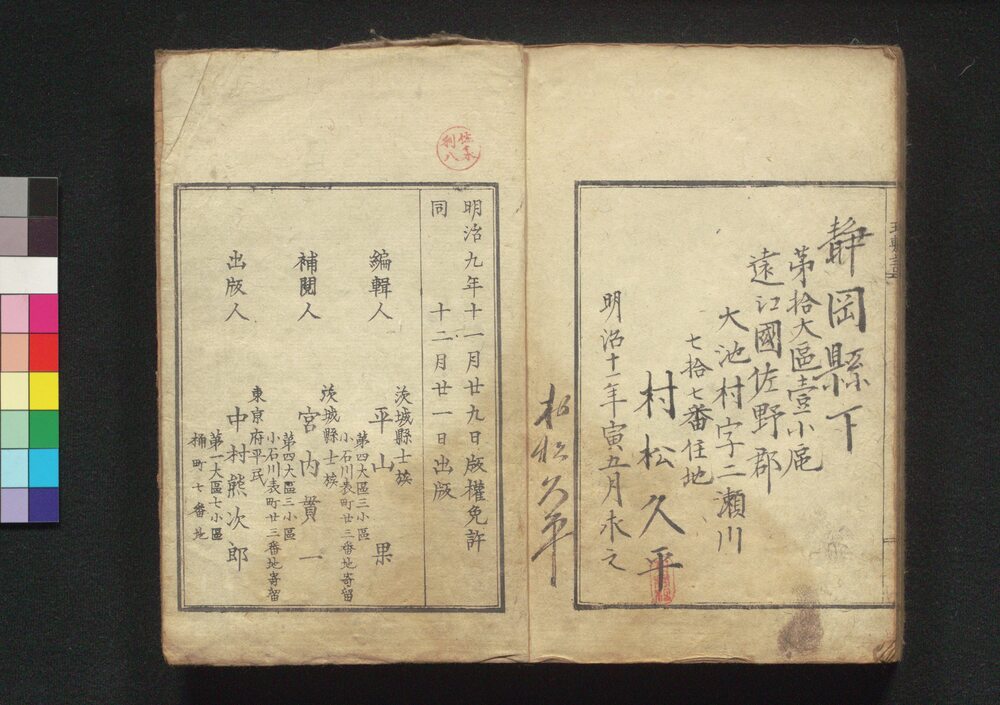 静岡縣下
第拾大區壹小區
遠江國佐野郡
大池村字二瀬川
七拾七番住地
村松久平
明治十一年寅五月求之
村松久平
佐々木
利八
明治九年十一月廿九日版權免許
同 十二月廿一日出版
編輯人
茨城縣士族
平山 果
第四大區三小區
小石川表町廿三番地寄留
補閲人
茨城縣士族
宮内貫一
第四大區三小區
小石川表町廿三番地寄留
出版人
東京府平民
中村熊次郎
第一大區七小區
桶町七番地